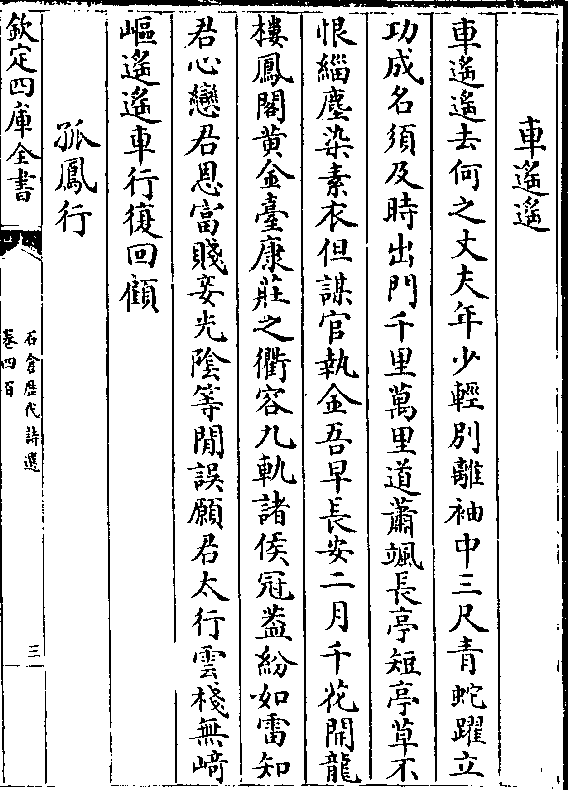 車遙遙
車遙遙去何之丈夫年少輕別離袖中三尺青蛇躍立
功成名須及時出門千里萬里道蕭颯長亭短亭草不
恨緇塵染素衣但謀官執金吾早長安二月千花開龍
樓鳳閣黄金臺康莊之衢容九軌諸侯冠葢紛如雷知
君心戀君恩富賤妾光陰等閒誤願君太行雲棧無﨑
嶇遙遙車行復回顧
孤鳳行
欽定四庫全書
石倉歴代詩選
卷四百
三